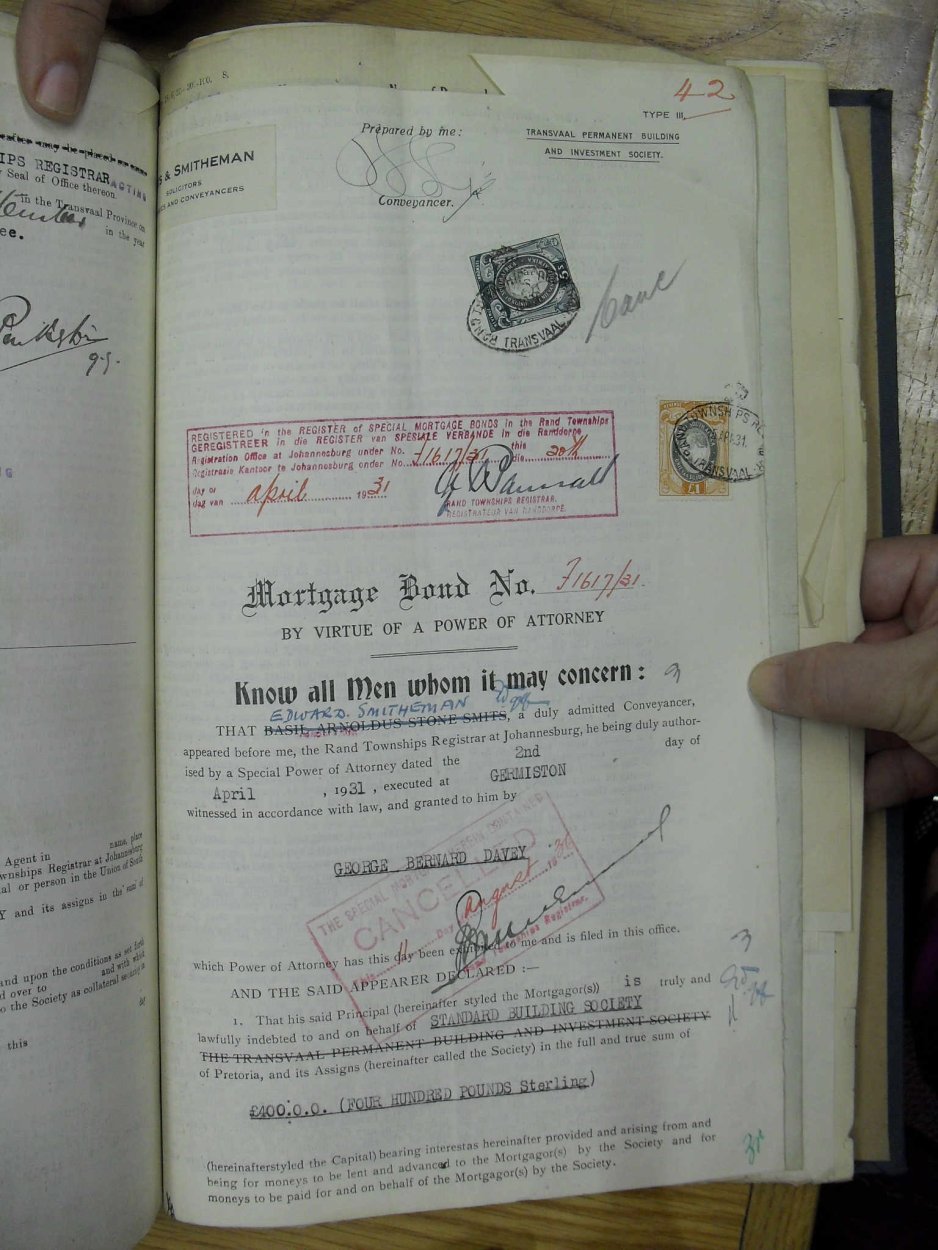 42
TYPE III.
TRANSVAAL PERMANENT BUILDING
AND INVESTMENT SOCIETY.
Prepared by me:
Conveyancer.
& SMITHEMAN
SOLICITORS
AND CONVEYANCERS
TRANSVAAL
TOWNSHIPS
APR.31
TRANSVAAL
£1
REGISTERED in the REGISTER of SPECIAL MORTGAGE BONDS in the Rand Townships
GEREGISTREER in die REGISTER van SPESIALE VERBANDE in die Randdorpe
Registration Office at Johannesburg under No. F1617/31 this 20th
Registrasie Kantoor te Johannesburg onder No. die
day of April 1931
dag van
RAND TOWNSHIPS REGISTRAR.
REGISTRATEUR VAN RANDDORPE.
Mortgage Bond No. F1617/31.
BY VIRTUE OF A POWER OF ATTORNEY
Know all Men whom it may concern:
EDWARD SMITHEMAN
THAT BASIL ARNOLDUS STONE SMITS, a duly admitted Conveyancer,
appeared before me, the Rand Townships Registrar at Johannesburg, he being duly author-
ised by a Special Power of Attorney dated the 2nd day of
April , 1931 , executed at GERMISTON
witnessed in accordance with law, and granted to him by
GEORGE BERNARD DAVEY
THE SPECIAL MORTGAGE HEREIN CONTAINED
CANCELLED
This 11 Day August 19
Rand Townships Registrar.
which Power of Attorney has this day been exhibited to me and is filed in this office.
AND THE SAID APPEARER DECLARED :—
1. That his said Principal (hereinafter styled the Mortgagor(s)) is truly and
lawfully indebted to and on behalf of STANDARD BUILDING SOCIETY
THE TRANSVAAL PERMANENT BUILDING AND INVESTMENT SOCIETY
of Pretoria, and its Assigns (hereinafter called the Society) in the full and true sum of
£400:0.0. (FOUR HUNDRED POUNDS Sterling)
(hereinafterstyled the Capital) bearing interestas hereinafter provided and arising from and
being for moneys to be lent and advanced to the Mortgagor(s) by the Society and for
moneys to be paid for and on behalf of the Mortgagor(s) by the Society.
IPS REGISTRAR ACTING
Seal of Office thereon
in the Transvaal Province on
in the year
ee.
Agent in name, place
wnships Registrar at Johannesburg
al or person in the Union of South
Y and its assigns in the sum of
and upon the conditions as set forth
d over to and with which
o the Society as collateral security in
by
this